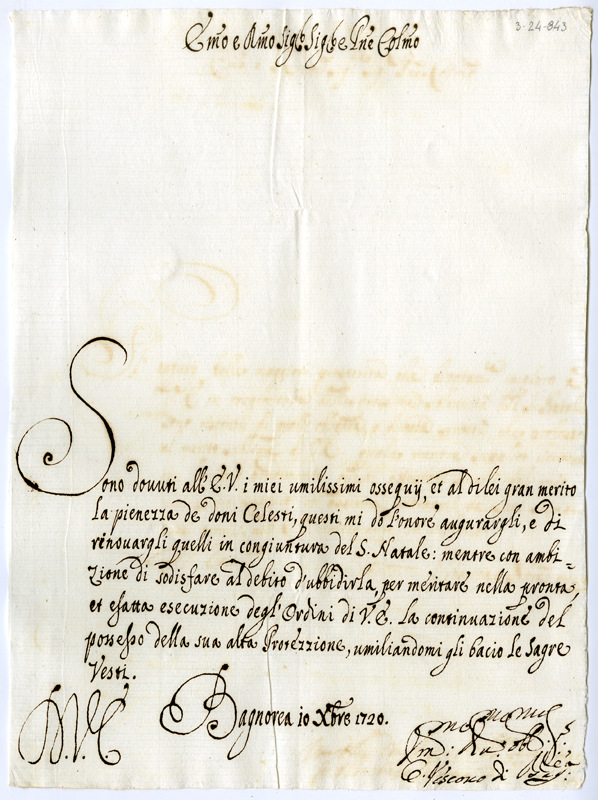 3-24-843
Emo e Rmo Sig.r Sig.r e Pne Colmo
Sono dovuti all'E.V. i miei umilissimi ossequij, et al di lei gran merito
la pienezza de doni Celesti, questi mi dò l'onore augurargli, e di
renovargli quelli in congiuntura del S. Natale: mentre con ambi-
zione di sodisfare al debito d'ubbidirla, per meritare nella pronta,
et esatta esecuzione degl'Ordini di V.E. la continuazione del
possesso della sua alta Protezzione, umiliandomi gli bacio le sagre
Vesti.
D.V.E. Bagnorea 10 Xbre 1720.
Vescovo di